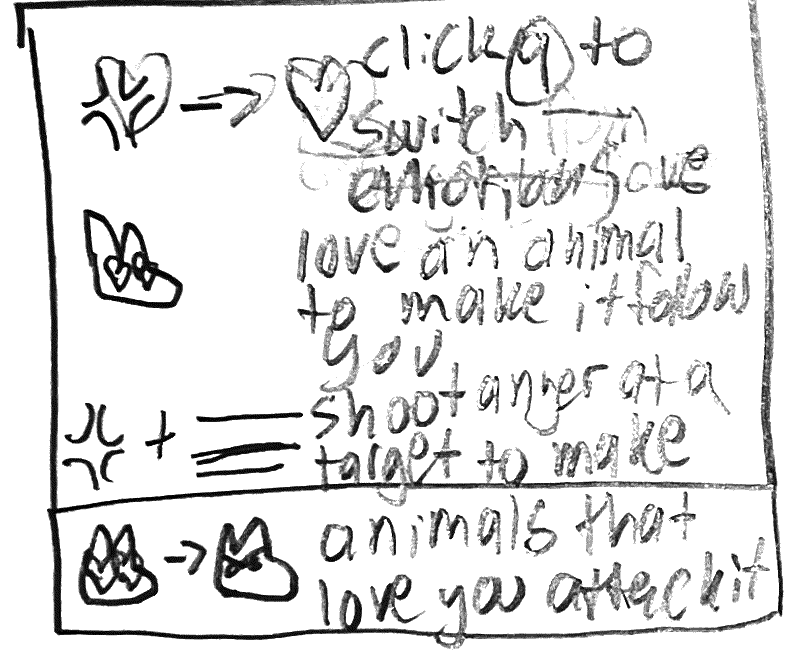 click q to
switch
emotions
love an animal
to make it follow
you
shoot anger at a
target to make
animals that
love you attack it